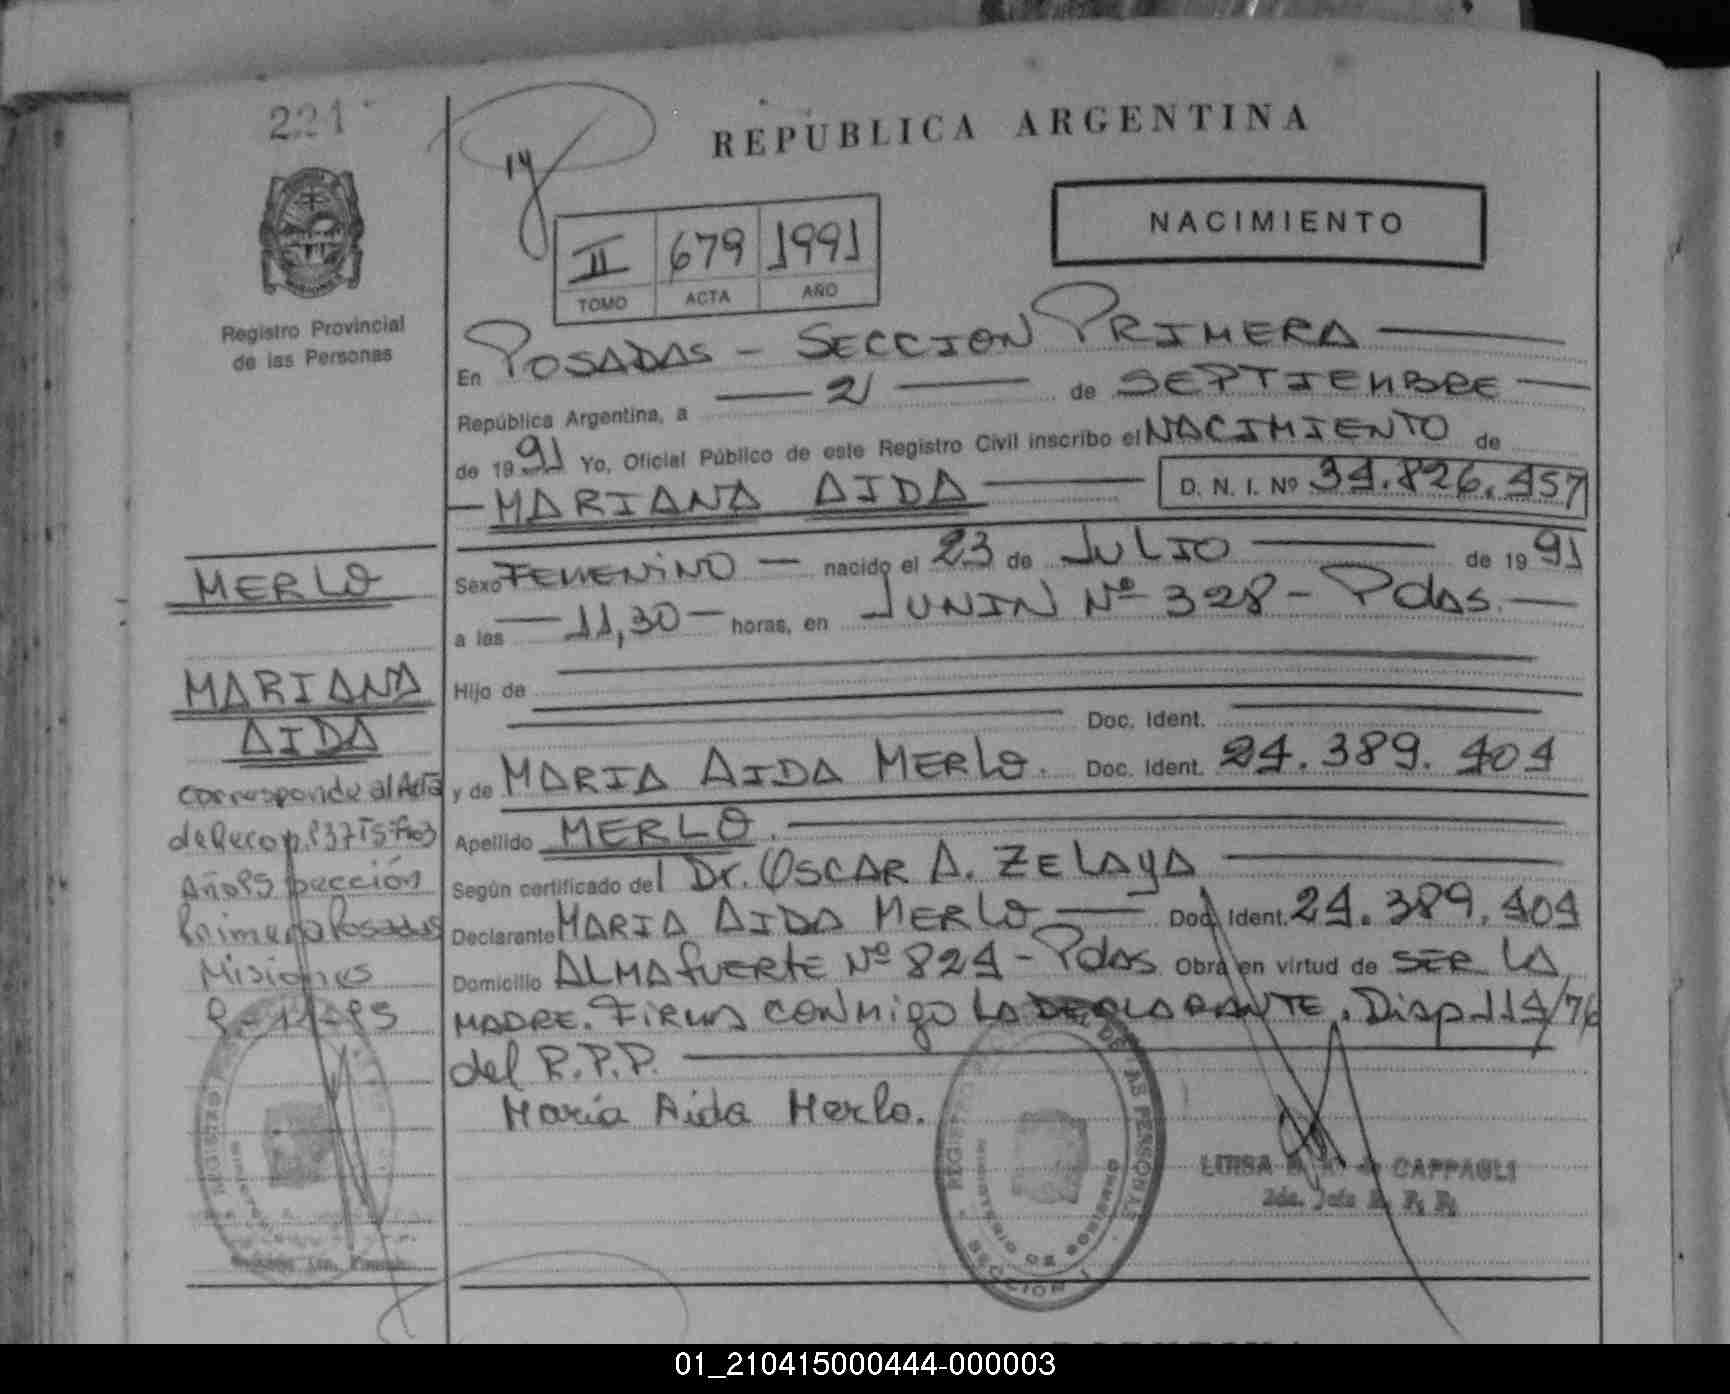 221
REPUBLICA ARGENTINA
NACIMIENTO
II 679 1991
TOMO ACTA AÑO
Registro Provincial
de las Personas
En POSADAS - SECCION PRIMERA
República Argentina, a 2 de SEPTIEMBRE
de 1991 Yo, Oficial Público de este Registro Civil inscribo el NACIMIENTO de
MARIANA AIDA D. N. I. Nº 34.826.457
Sexo FEMENINO nacido el 23 de JULIO de 1991
a las 11,30 horas, en JUNIN Nº 328 - Pdas.
Hijo de
Doc. Ident.
y de MARIA AIDA MERLO. Doc. Ident. 24.389.404
Apellido MERLO.
Según certificado del Dr. OSCAR A. ZELAYA
Declarante MARIA AIDA MERLO Doc. Ident. 24.389.404
Domicilio ALMAFUERTE Nº 824 - Pdas Obra en virtud de SER LA
MADRE. FIRMA CONMIGO LA DECLARANTE. Disp. 114/76
del R.P.P.
Maria Aida Merlo.
MERLO
MARIANA
AIDA
corresponde al Acta
de Recon.
Sección
Primera Posadas
Misiones
CAPPAGLI
2da. Jefe R. P. P.
SECCION 1
01_210415000444-000003